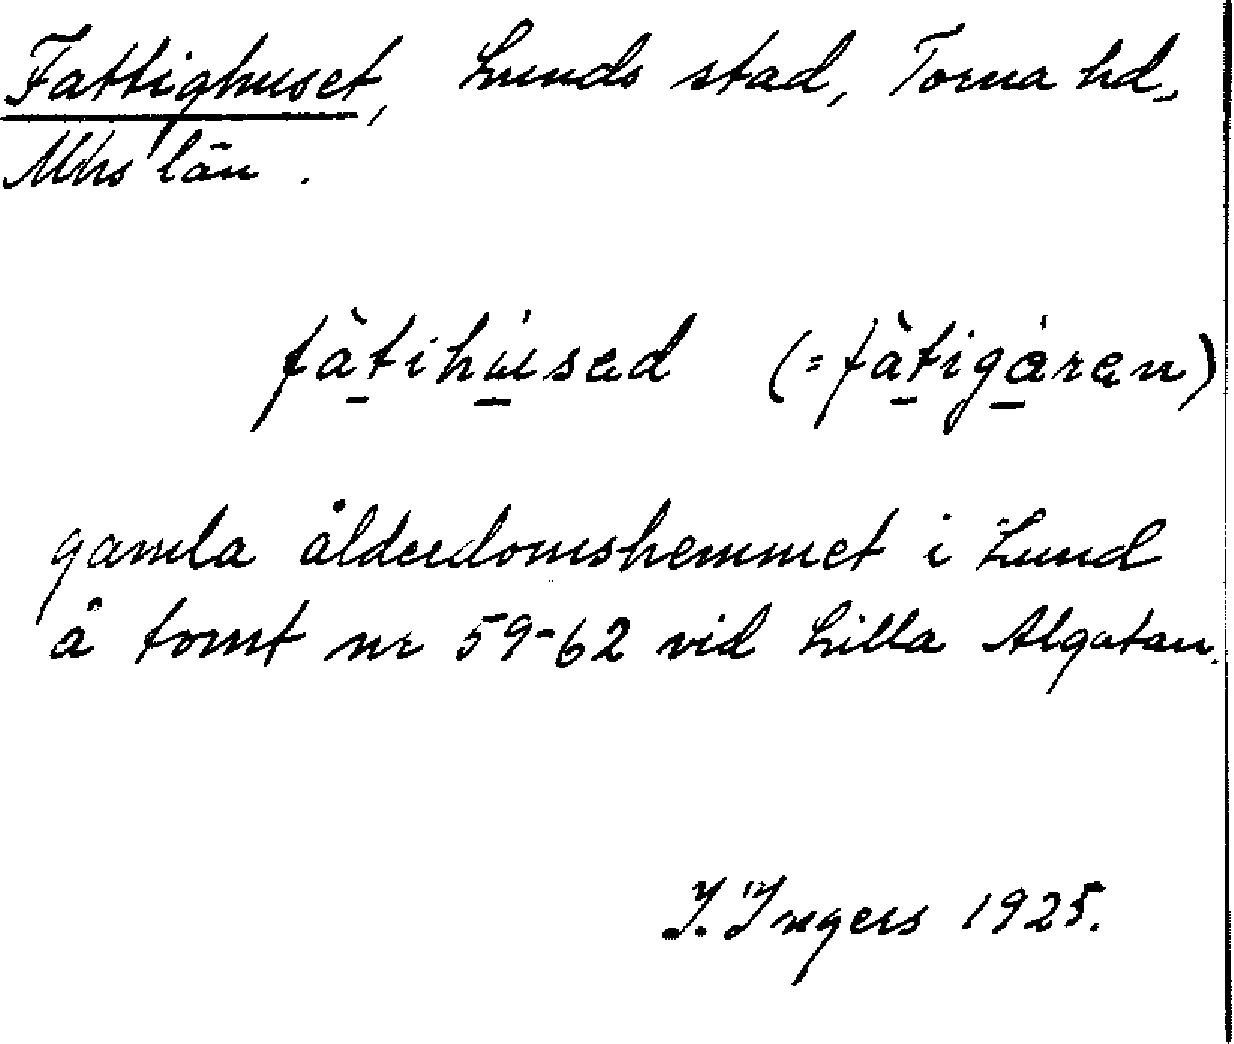 Fattighuset, Lunds stad, Torna hd,
Mhs län.
fàtihúsed (= fàtigáren)
gamla ålderdomshemmet i Lund
å tomt nr 59-62 vid Lilla Algatan.
I. Ingers 1925.